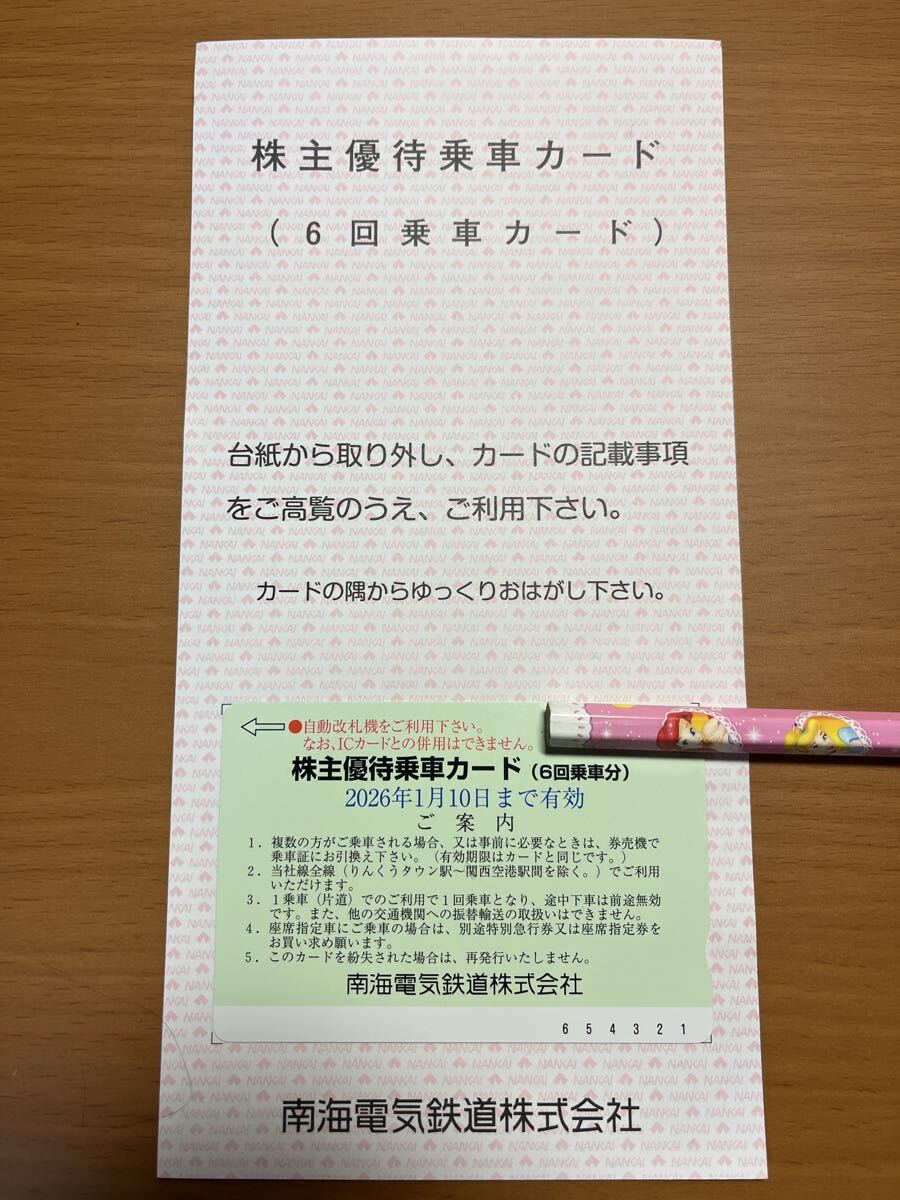 株主優待乗車カード
(6回乗車カード)
台紙から取り外し、カードの記載事項
をご高覧のうえ、ご利用下さい。
カードの隅からゆっくりおはがし下さい。
●自動改札機をご利用下さい。
なお、ICカードとの併用はできません。
株主優待乗車カード(6回乗車分)
2026年1月10日まで有効
ご案内
1．複数の方がご乗車される場合、又は事前に必要なときは、券売機で
乗車証にお引換え下さい。(有効期限はカードと同じです。)
2．当社線全線(りんくうタウン駅〜関西空港駅間を除く。)でご利用
いただけます。
3．1乗車(片道)でのご利用で1回乗車となり、途中下車は前途無効
です。また、他の交通機関への振替輸送の取扱いはできません。
4．座席指定車にご乗車の場合は、別途特別急行券又は座席指定券を
お買い求め願います。
5．このカードを紛失された場合は、再発行いたしません。
南海電気鉄道株式会社
6 5 4 3 2 1
南海電気鉄道株式会社